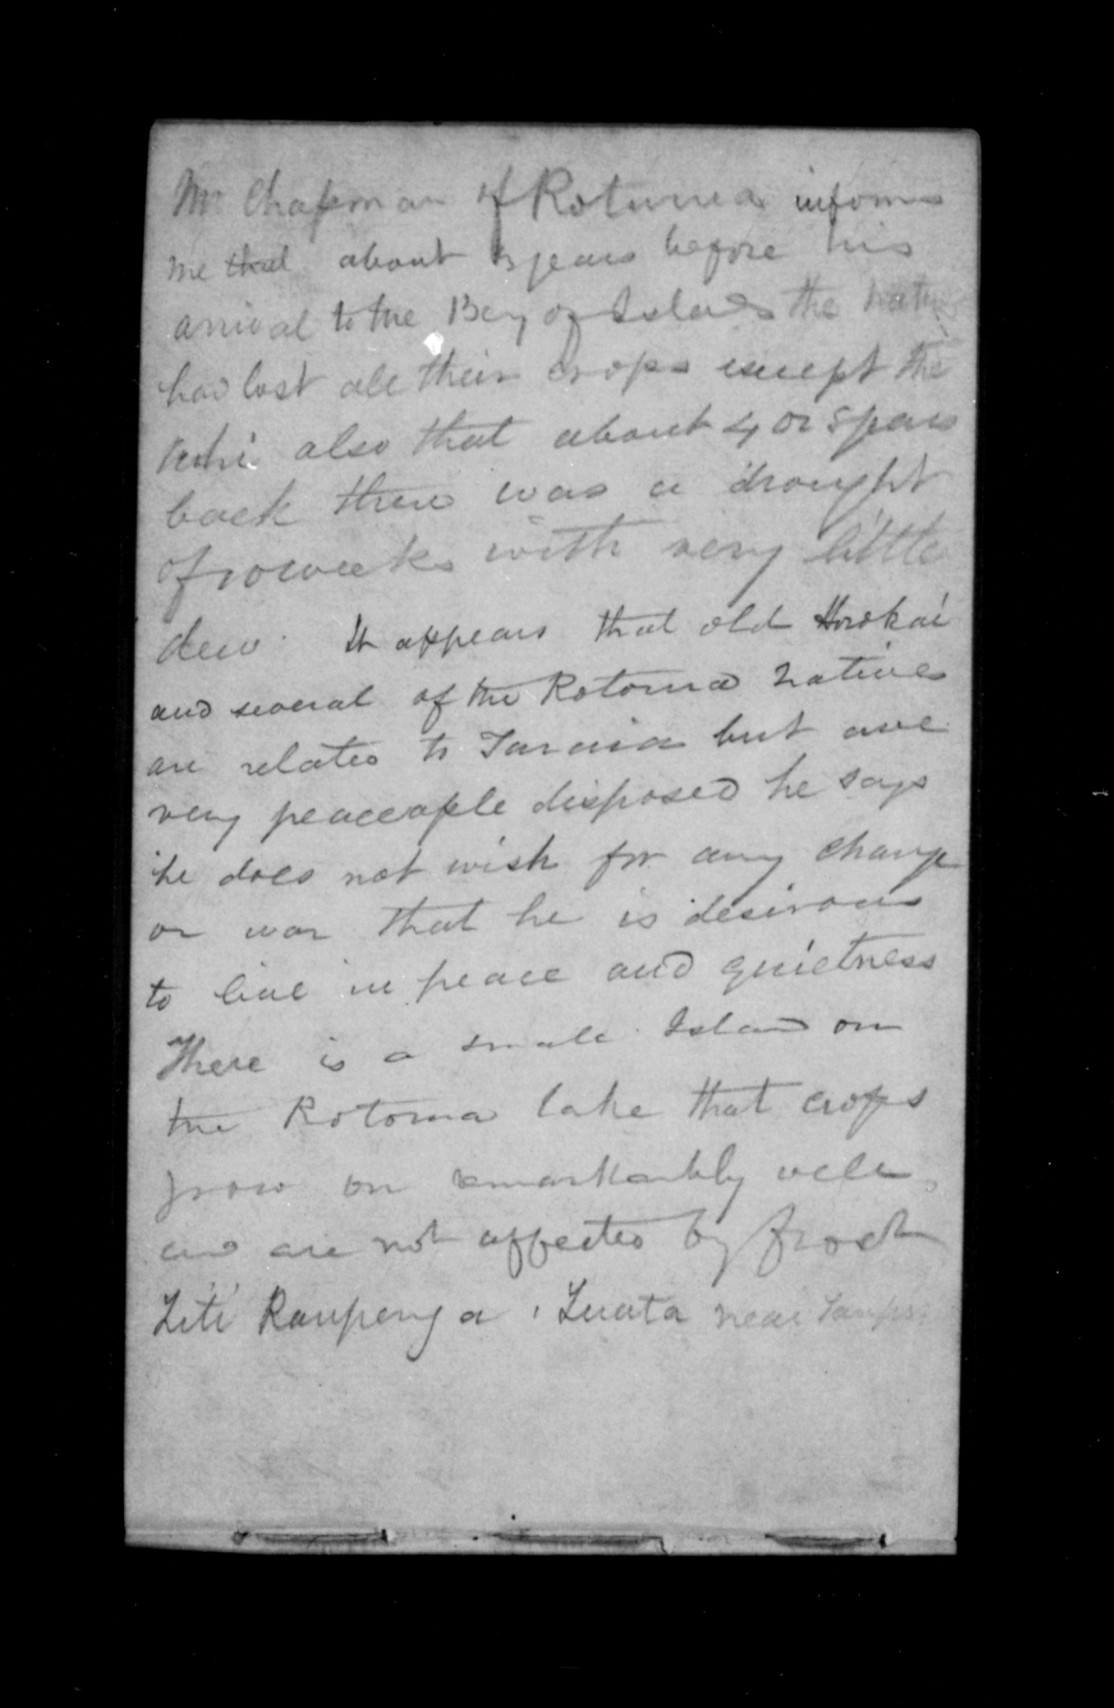 Mr Chapman of Rotorua informs
me that about 3 years before his
arrival to the Bay of Islands the Natives
had lost all their crops except the
also that about 4 or 5 years
back there was a drought
of 10 weeks with very little
dew. It appears that old Horokai
and several of the Rotorua Natives
are related to Taraia but are
very peaceable disposed he says
he does not wish for any change
or war that he is desirous
to live in peace and quietness
There is a small Island on
the Rotorua lake that crops
grow on remarkably well
and are not affected by frost
Titi Raupenga . near Taupo